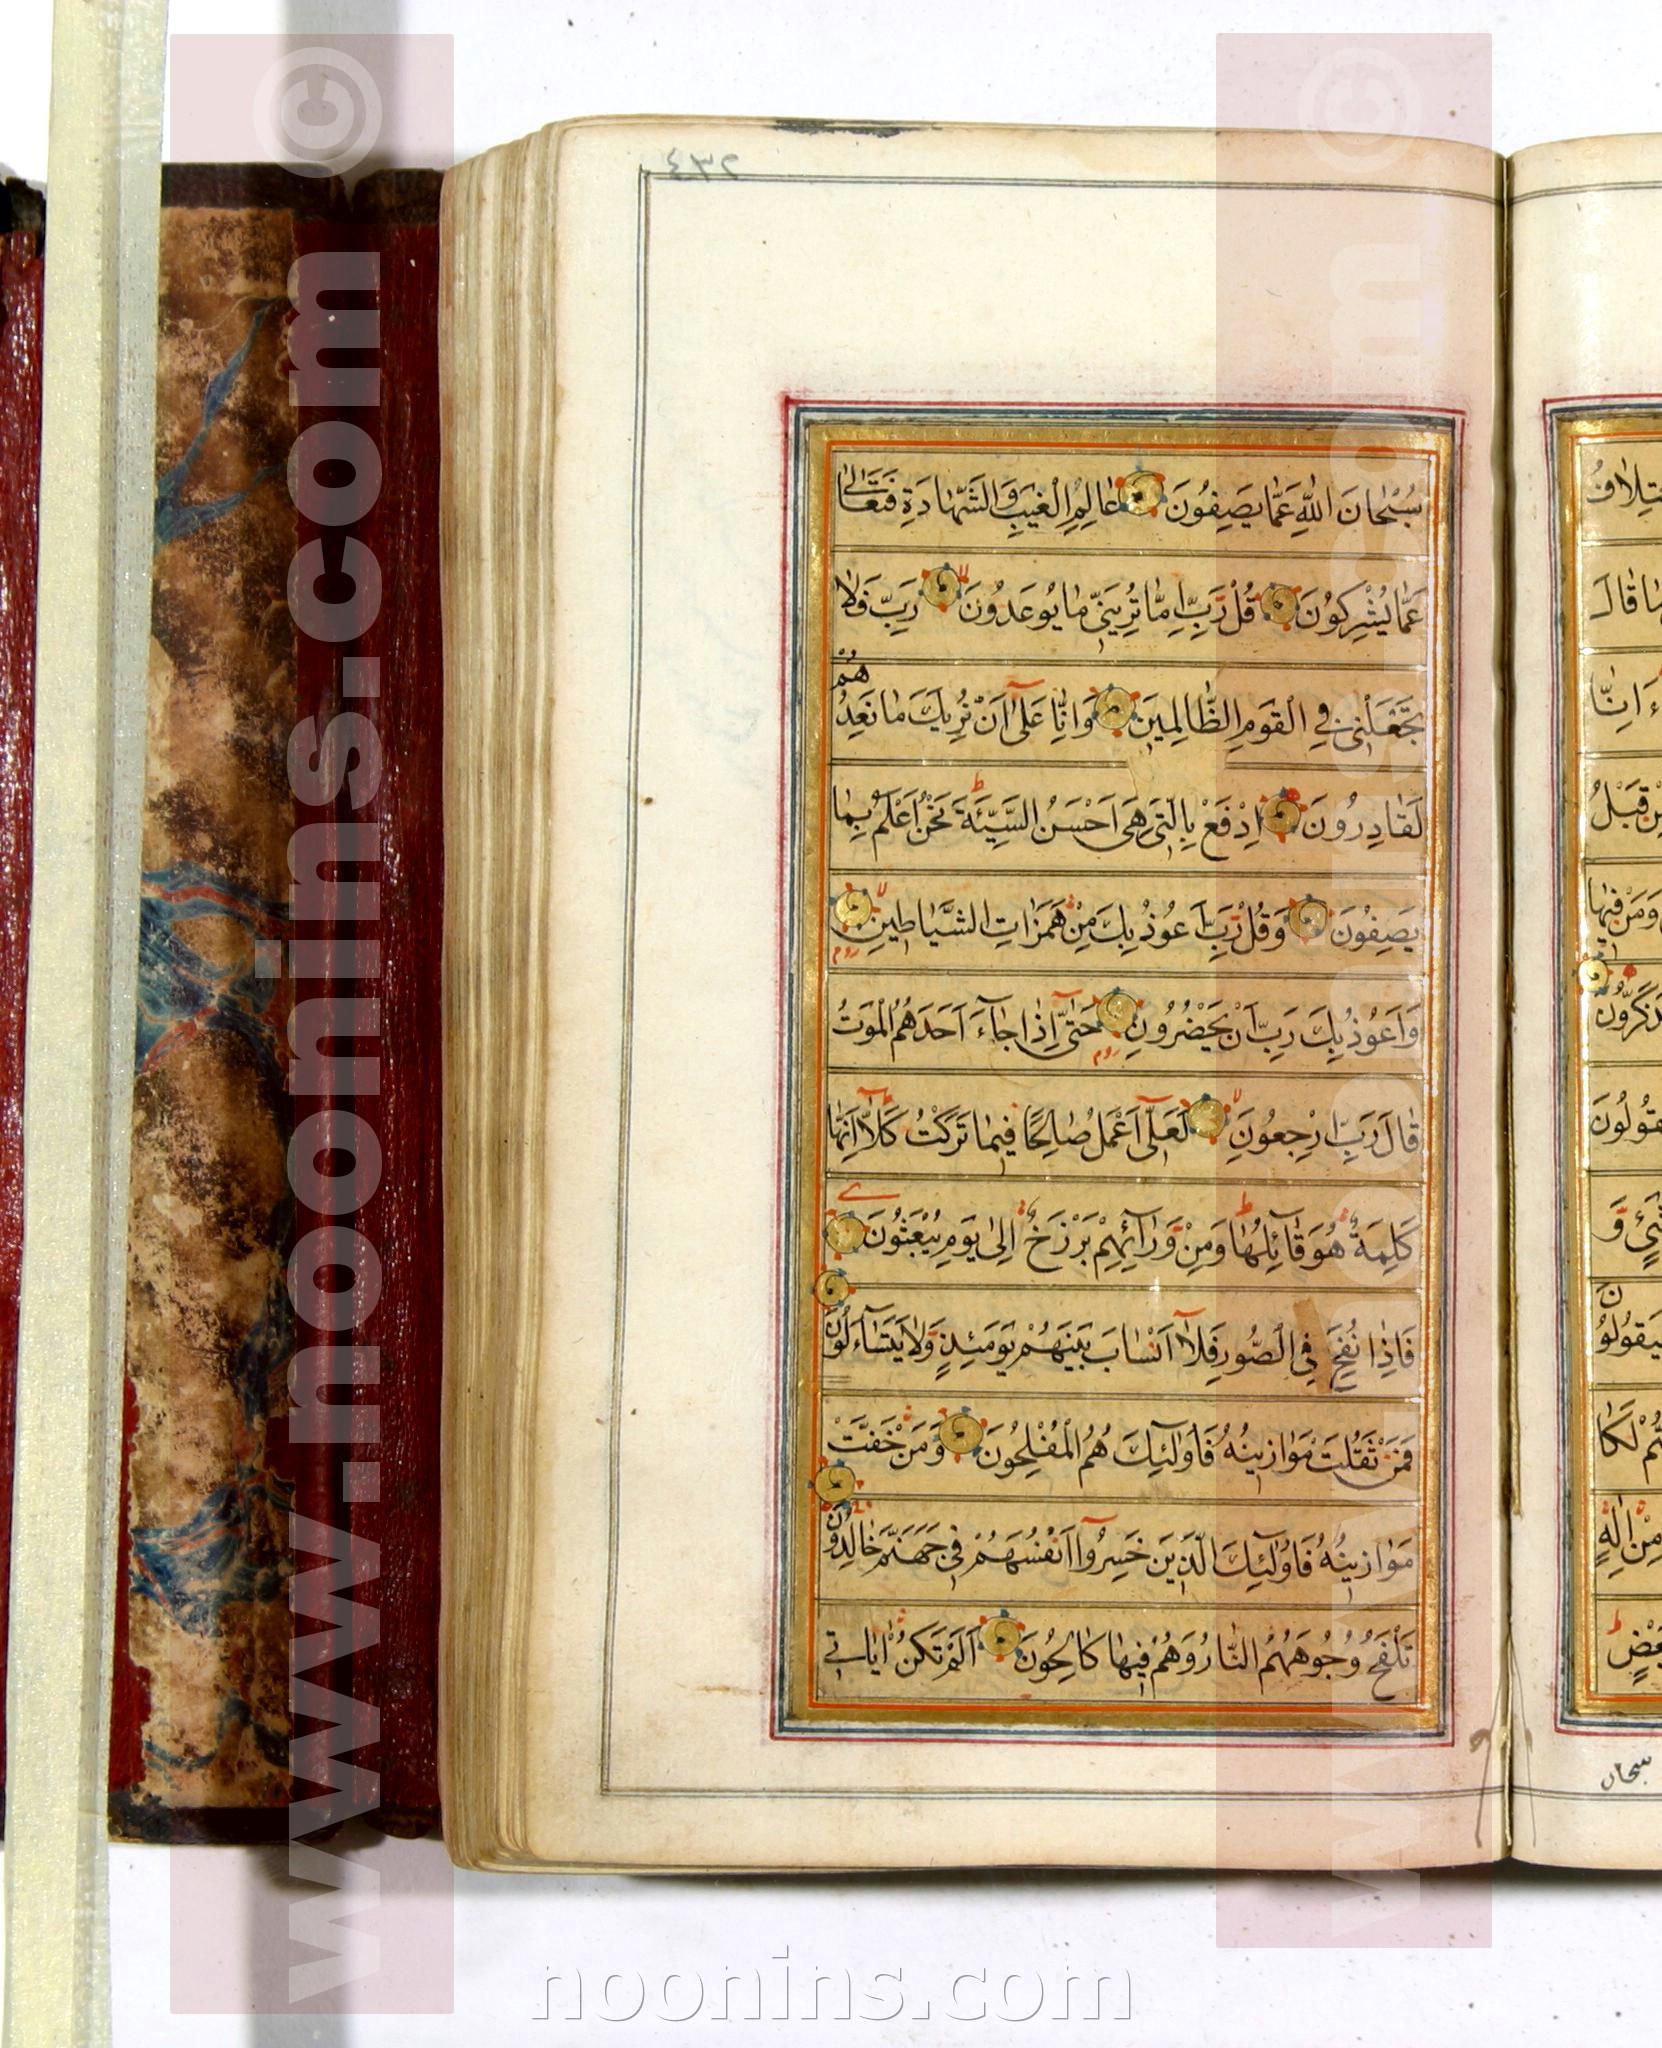 سُبْحَانَ اللّٰهِ عَمَّا يَصِفُونَ عَالِمِ الْغَيْبِ وَالشَّهَادَةِ فَتَعَالٰى
عَمَّا يُشْرِكُونَ قُلْ رَبِّ اِمَّا تُرِيَنِّي مَا يُوعَدُونَ رَبِّ فَلَا
تَجْعَلْنِي فِي الْقَوْمِ الظَّالِمِينَ وَاِنَّا عَلٰٓى اَنْ نُرِيَكَ مَا نَعِدُهُمْ
لَقَادِرُونَ اِدْفَعْ بِالَّتِي هِيَ اَحْسَنُ السَّيِّئَةَ نَحْنُ اَعْلَمُ بِمَا
يَصِفُونَ وَقُلْ رَبِّ اَعُوذُ بِكَ مِنْ هَمَزَاتِ الشَّيَاطِينِ
وَاَعُوذُ بِكَ رَبِّ اَنْ يَحْضُرُونِ حَتّٰٓى اِذَا جَآءَ اَحَدَهُمُ الْمَوْتُ
قَالَ رَبِّ ارْجِعُونِ لَعَلِّٓي اَعْمَلُ صَالِحًا فِيمَا تَرَكْتُ كَلَّآ اِنَّهَا
كَلِمَةٌ هُوَ قَآئِلُهَا وَمِنْ وَرَآئِهِمْ بَرْزَخٌ اِلٰى يَوْمِ يُبْعَثُونَ
فَاِذَا نُفِخَ فِي الصُّورِ فَلَآ اَنْسَابَ بَيْنَهُمْ يَوْمَئِذٍ وَلَا يَتَسَآءَلُونَ
فَمَنْ ثَقُلَتْ مَوَازِينُهُ فَاُولٰٓئِكَ هُمُ الْمُفْلِحُونَ وَمَنْ خَفَّتْ
مَوَازِينُهُ فَاُولٰٓئِكَ الَّذِينَ خَسِرُوٓا اَنْفُسَهُمْ فِي جَهَنَّمَ خَالِدُونَ
تَلْفَحُ وُجُوهَهُمُ النَّارُ وَهُمْ فِيهَا كَالِحُونَ اَلَمْ تَكُنْ اٰيَاتِي
سبحان
www.noonins.com ©
noonins.com